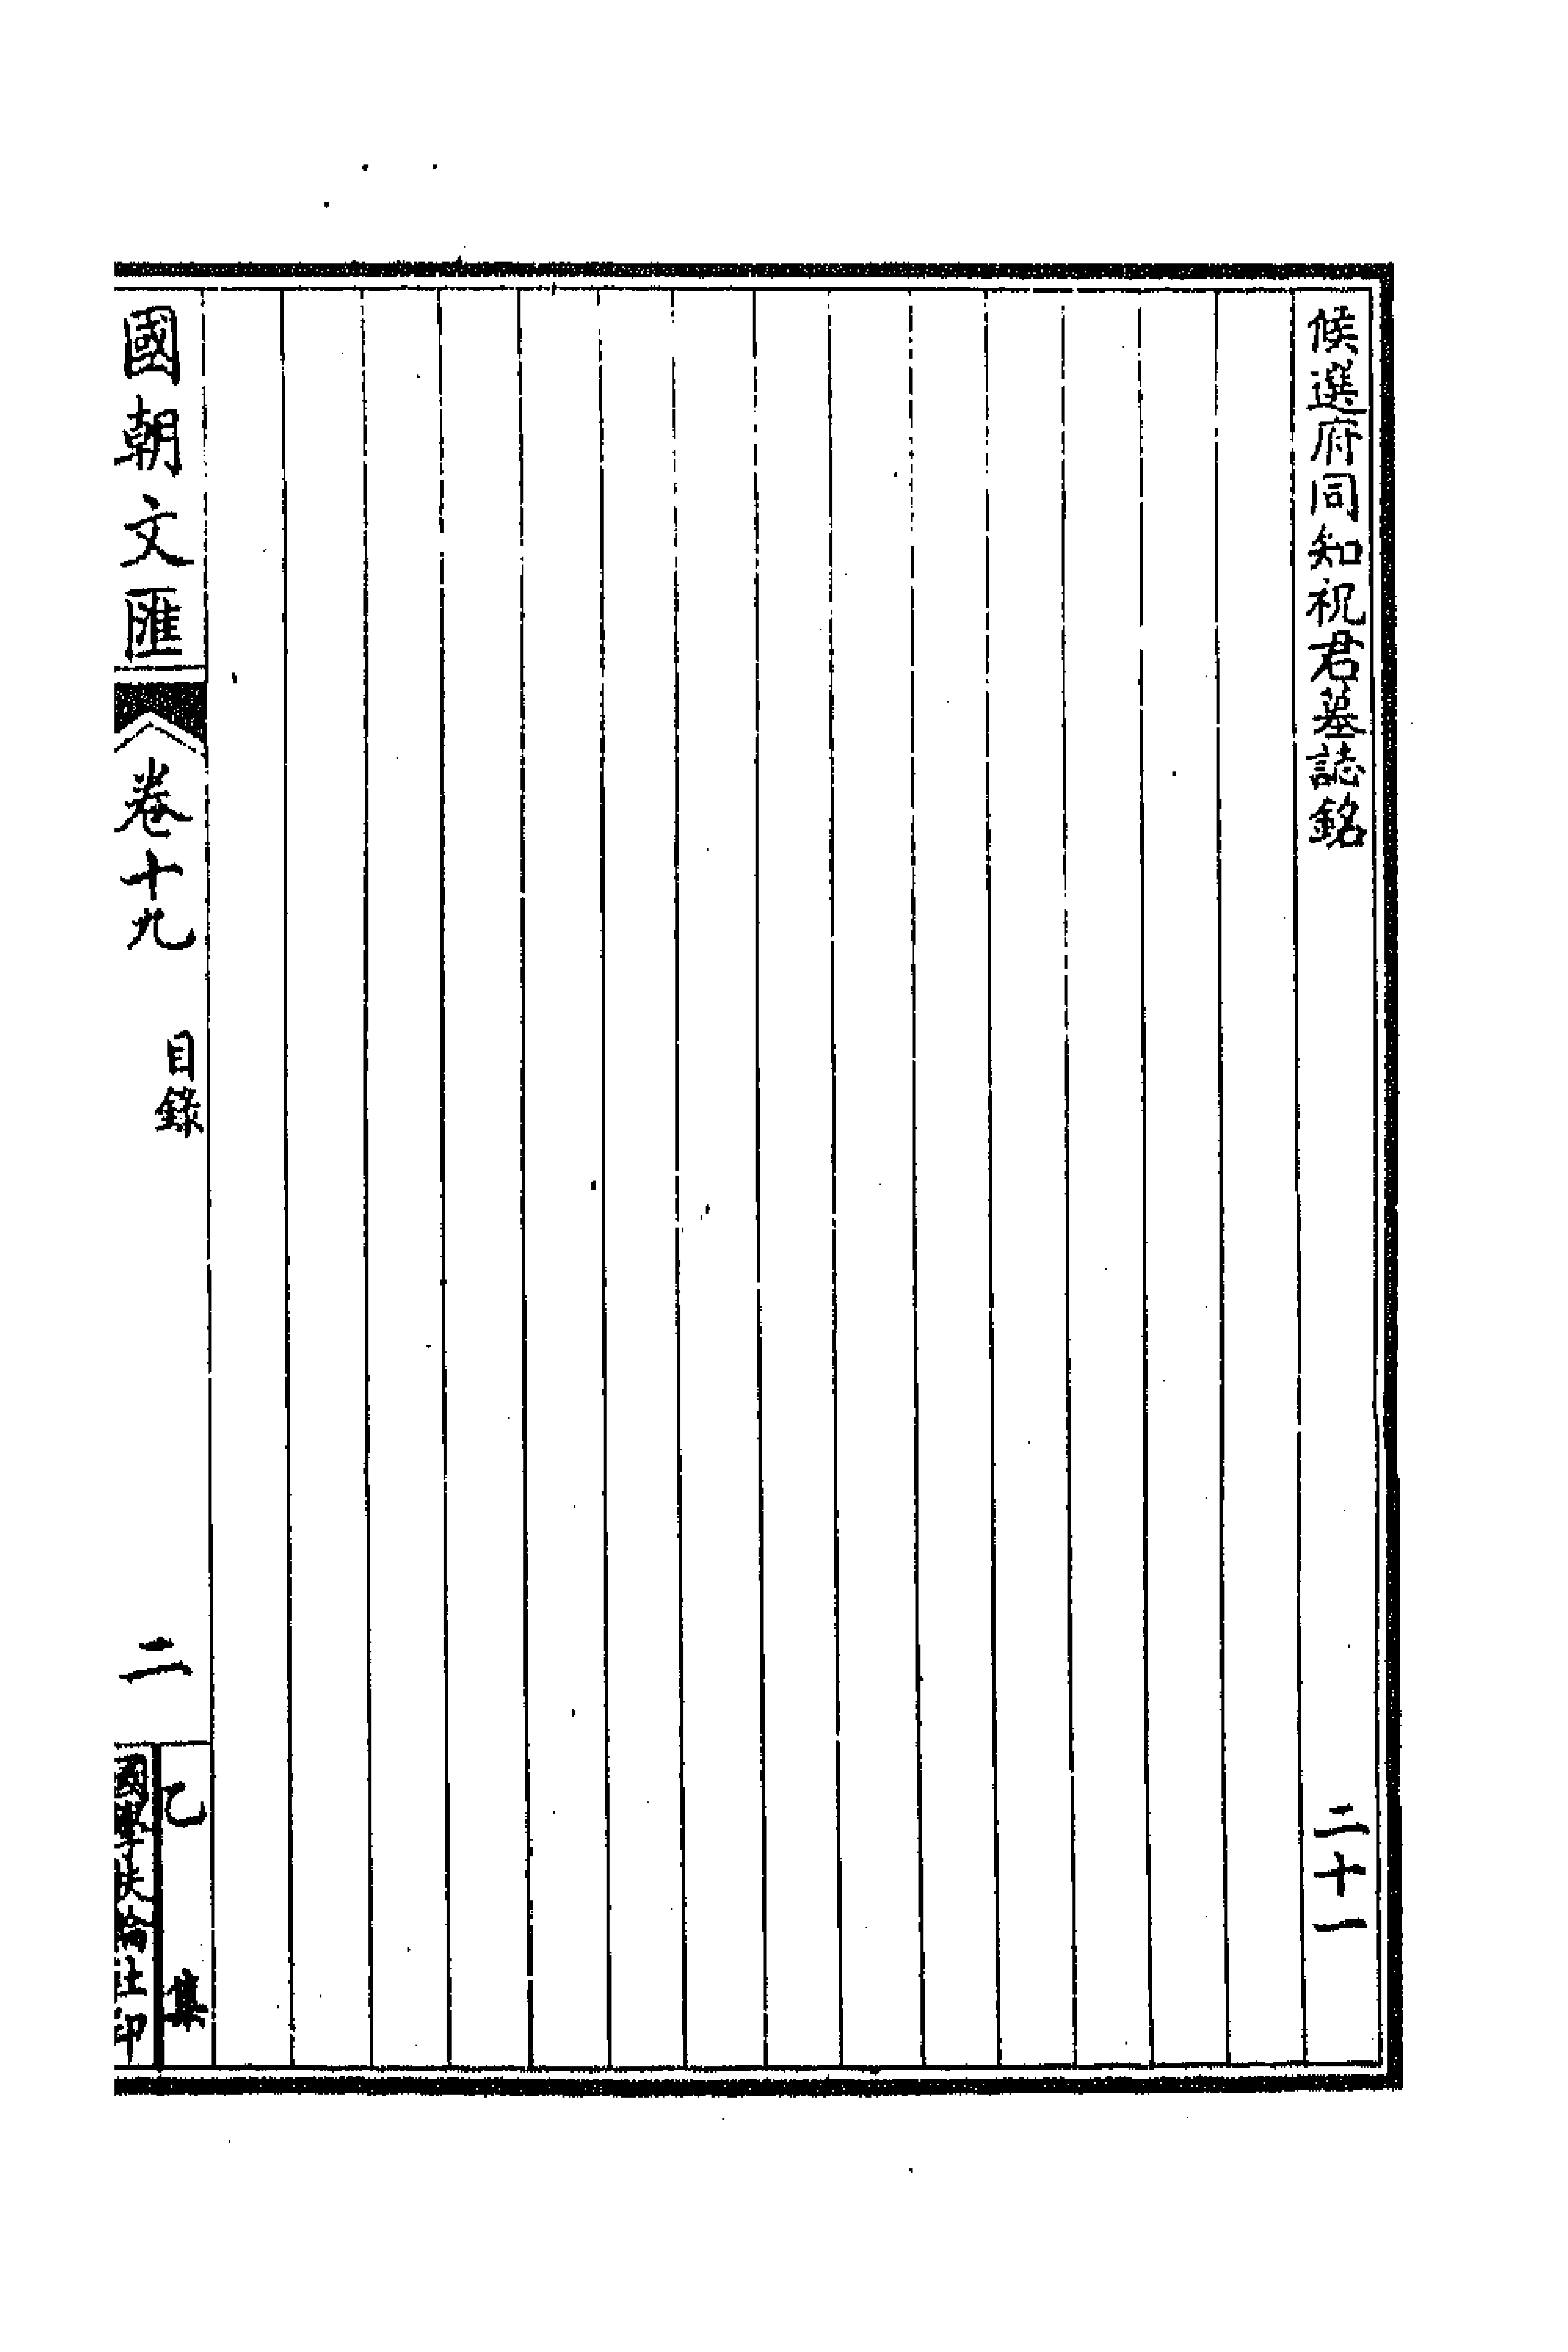 候選府同知祝君墓誌銘 二十一
國朝文匯 卷十九 目錄 二 乙集